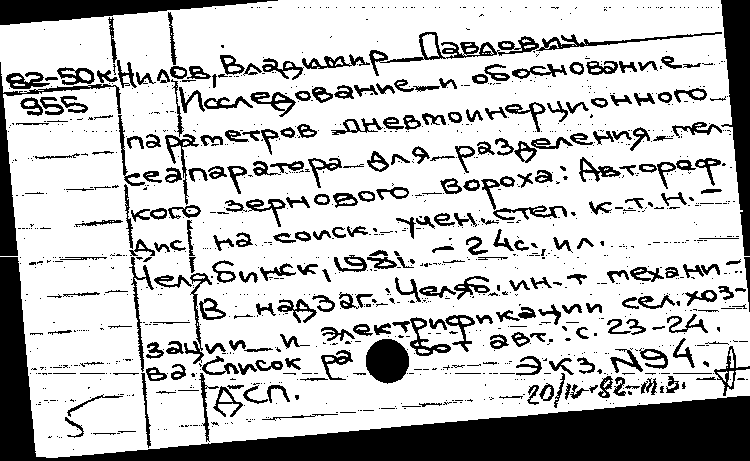 82-50к Нилов, Владимир Павлович.
955 Исследование и обоснование
параметров пневтоинерционного
сеапаратора для разделения мел-
кого зернового вороха: Автореф.
Дис на соиск. учен. степ. к.т.н. -
Челябинск, 1981. - 24с., ил.
В надзаг.: Челяб. ин-т механи-
зации и электрификации сел. хоз-
ва. Список работ авт.: с. 23-24.
Экз. N94.
ДСП.
20/IV-82-т.з.
5